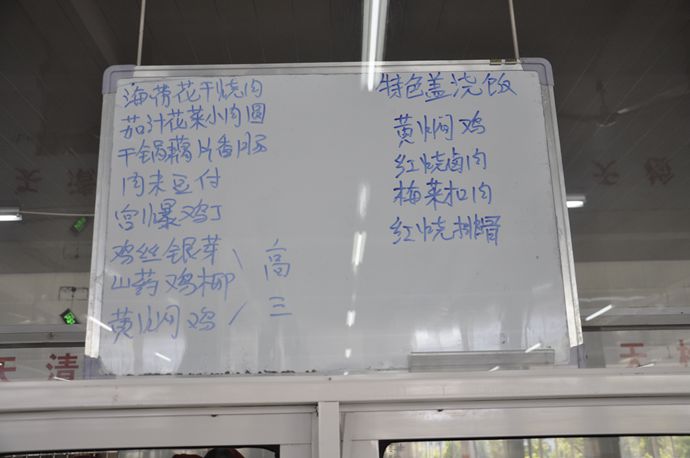 海带花干烧肉
茄汁花菜小肉圆
干锅藕片香肠
肉末豆付
宫爆鸡丁
鸡丝银芽
山药鸡柳
黄焖鸡
高
三
特色盖浇饭
黄焖鸡
红烧卤肉
梅菜扣肉
红烧排骨
天清
天